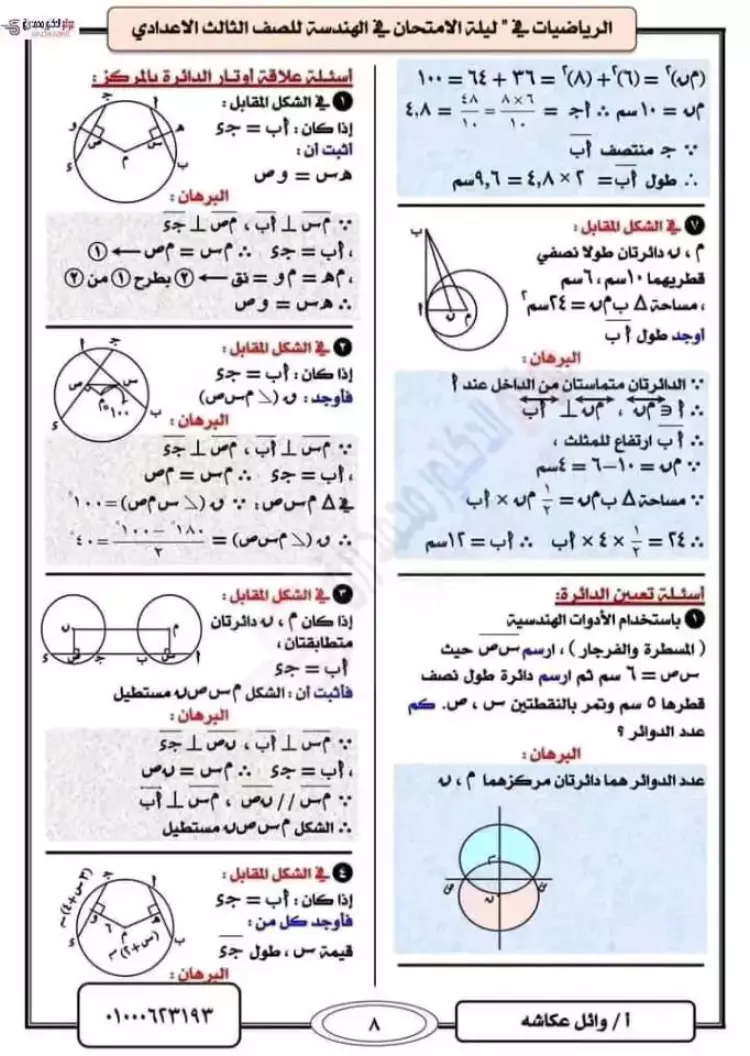 موقع الدكتور محمد رزق
الرياضيات في " ليلة الامتحان في الهندسة للصف الثالث الاعدادي
(م ن)٢ = (٦)٢ + (٨)٢ = ٣٦ + ٦٤ = ١٠٠
م ن = ١٠ سم ∴ أجـ = ٦ × ٨ / ١٠ = ٤٨ / ١٠ = ٤,٨
∵ جـ منتصف أب
∴ طول أب = ٢ × ٤,٨ = ٩,٦ سم
٧ في الشكل المقابل :
م ، ن دائرتان طولا نصفي
قطريهما ١٠ سم ، ٦ سم
، مساحة Δ ب م ن = ٢٤ سم٢
أوجد طول أب
البرهان :
∵ الدائرتان متماستان من الداخل عند أ
∴ أ ∈ م ن ، م ن ⊥ أب
∴ أب ارتفاع للمثلث ،
∵ م ن = ١٠ – ٦ = ٤ سم
∵ مساحة Δ ب م ن = ١/٢ م ن × أب
∴ ٢٤ = ١/٢ × ٤ × أب ∴ أب = ١٢ سم
أسئلة تعيين الدائرة:
١ باستخدام الأدوات الهندسية
( المسطرة والفرجار ) ، ارسم س ص حيث
س ص = ٦ سم ثم ارسم دائرة طول نصف
قطرها ٥ سم وتمر بالنقطتين س ، ص. كم
عدد الدوائر ؟
البرهان :
عدد الدوائر هما دائرتان مركزهما م ، ن
أسئلة علاقة أوتار الدائرة بالمركز :
١ في الشكل المقابل :
إذا كان : أب = جـ ء
اثبت أن :
هـ س = و ص
البرهان :
∵ م س ⊥ أب ، م ص ⊥ جـ ء
، أب = جـ ء ∴ م س = م ص ← ١
، م هـ = م و = نق ← ٢ بطرح ١ من ٢
∴ هـ س = و ص
٢ في الشكل المقابل :
إذا كان : أب = جـ ء
فأوجد : ق (∠ م س ص)
١٠٠°
البرهان :
∵ م س ⊥ أب ، م ص ⊥ جـ ء
، أب = جـ ء ∴ م س = م ص
في Δ م س ص : ∵ ق (∠ س م ص) = ١٠٠°
∴ ق (∠ م س ص) = ١٨٠° – ١٠٠° / ٢ = ٤٠°
٣ في الشكل المقابل :
إذا كان م ، ن دائرتان
متطابقتان ،
أب = جـ ء
فأثبت أن : الشكل م س ص ن مستطيل
البرهان :
∵ م س ⊥ أب ، ن ص ⊥ جـ ء
، أب = جـ ء ∴ م س = ن ص
∵ م س // ن ص ، م س ⊥ أب
∴ الشكل م س ص ن مستطيل
٤ في الشكل المقابل :
إذا كان : أب = جـ ء
فأوجد كل من :
قيمة س ، طول جـ ء
البرهان :
أ / وائل عكاشه
٨
٠١٠٠٠٦٢٣١٩٣